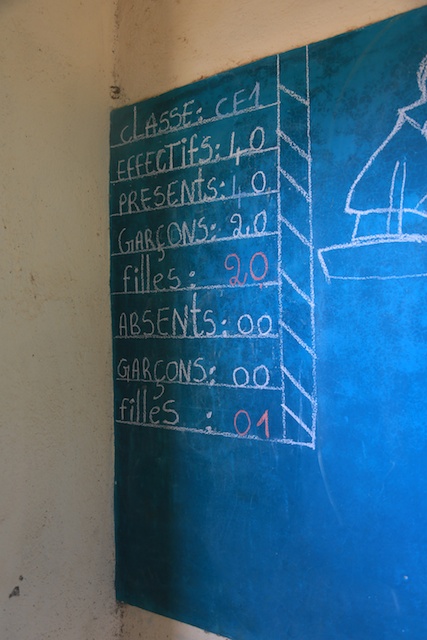 CLASSE: CE1
EFFECTIFS: 40
PRESENTS: 10
GARÇONS: 20
filles: 20
ABSENTS: 00
GARÇONS: 00
filles : 01